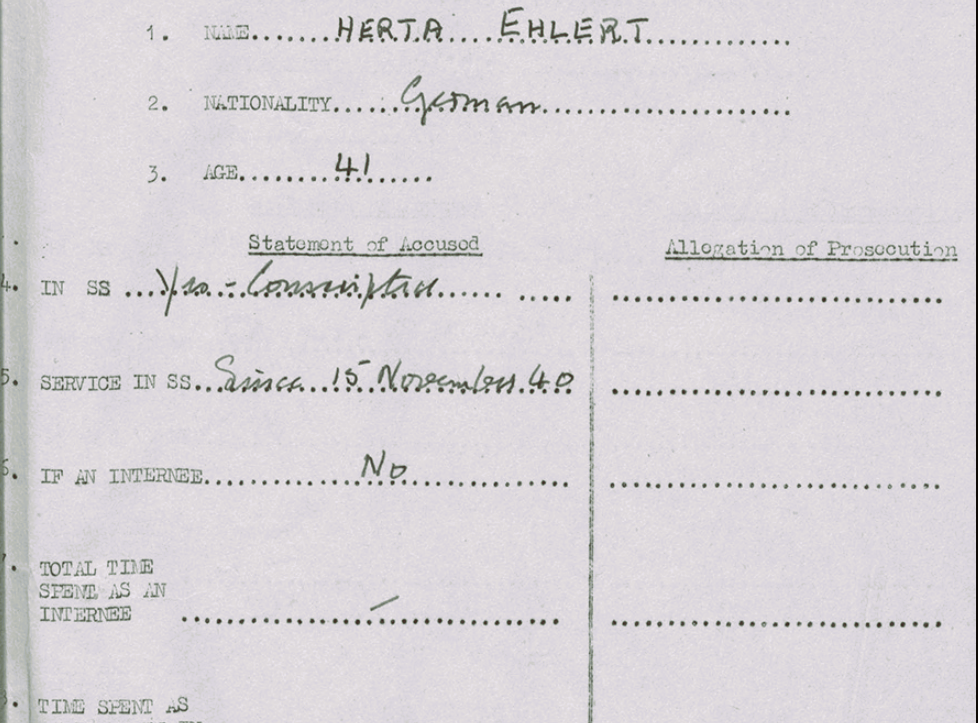 1. NAME.......HERTA....EHLERT..............
2. NATIONALITY......German.......................
3. AGE.........41......
Statement of Accused Allegation of Prosecution
4. IN SS ...Yes - Conscripted...... ..... .............................
5. SERVICE IN SS..Since..15.November.40 .............................
6. IF AN INTERNEE............No................ .............................
7. TOTAL TIME
SPENT AS AN
INTERNEE ...............–................ .............................
TIME SPENT AS